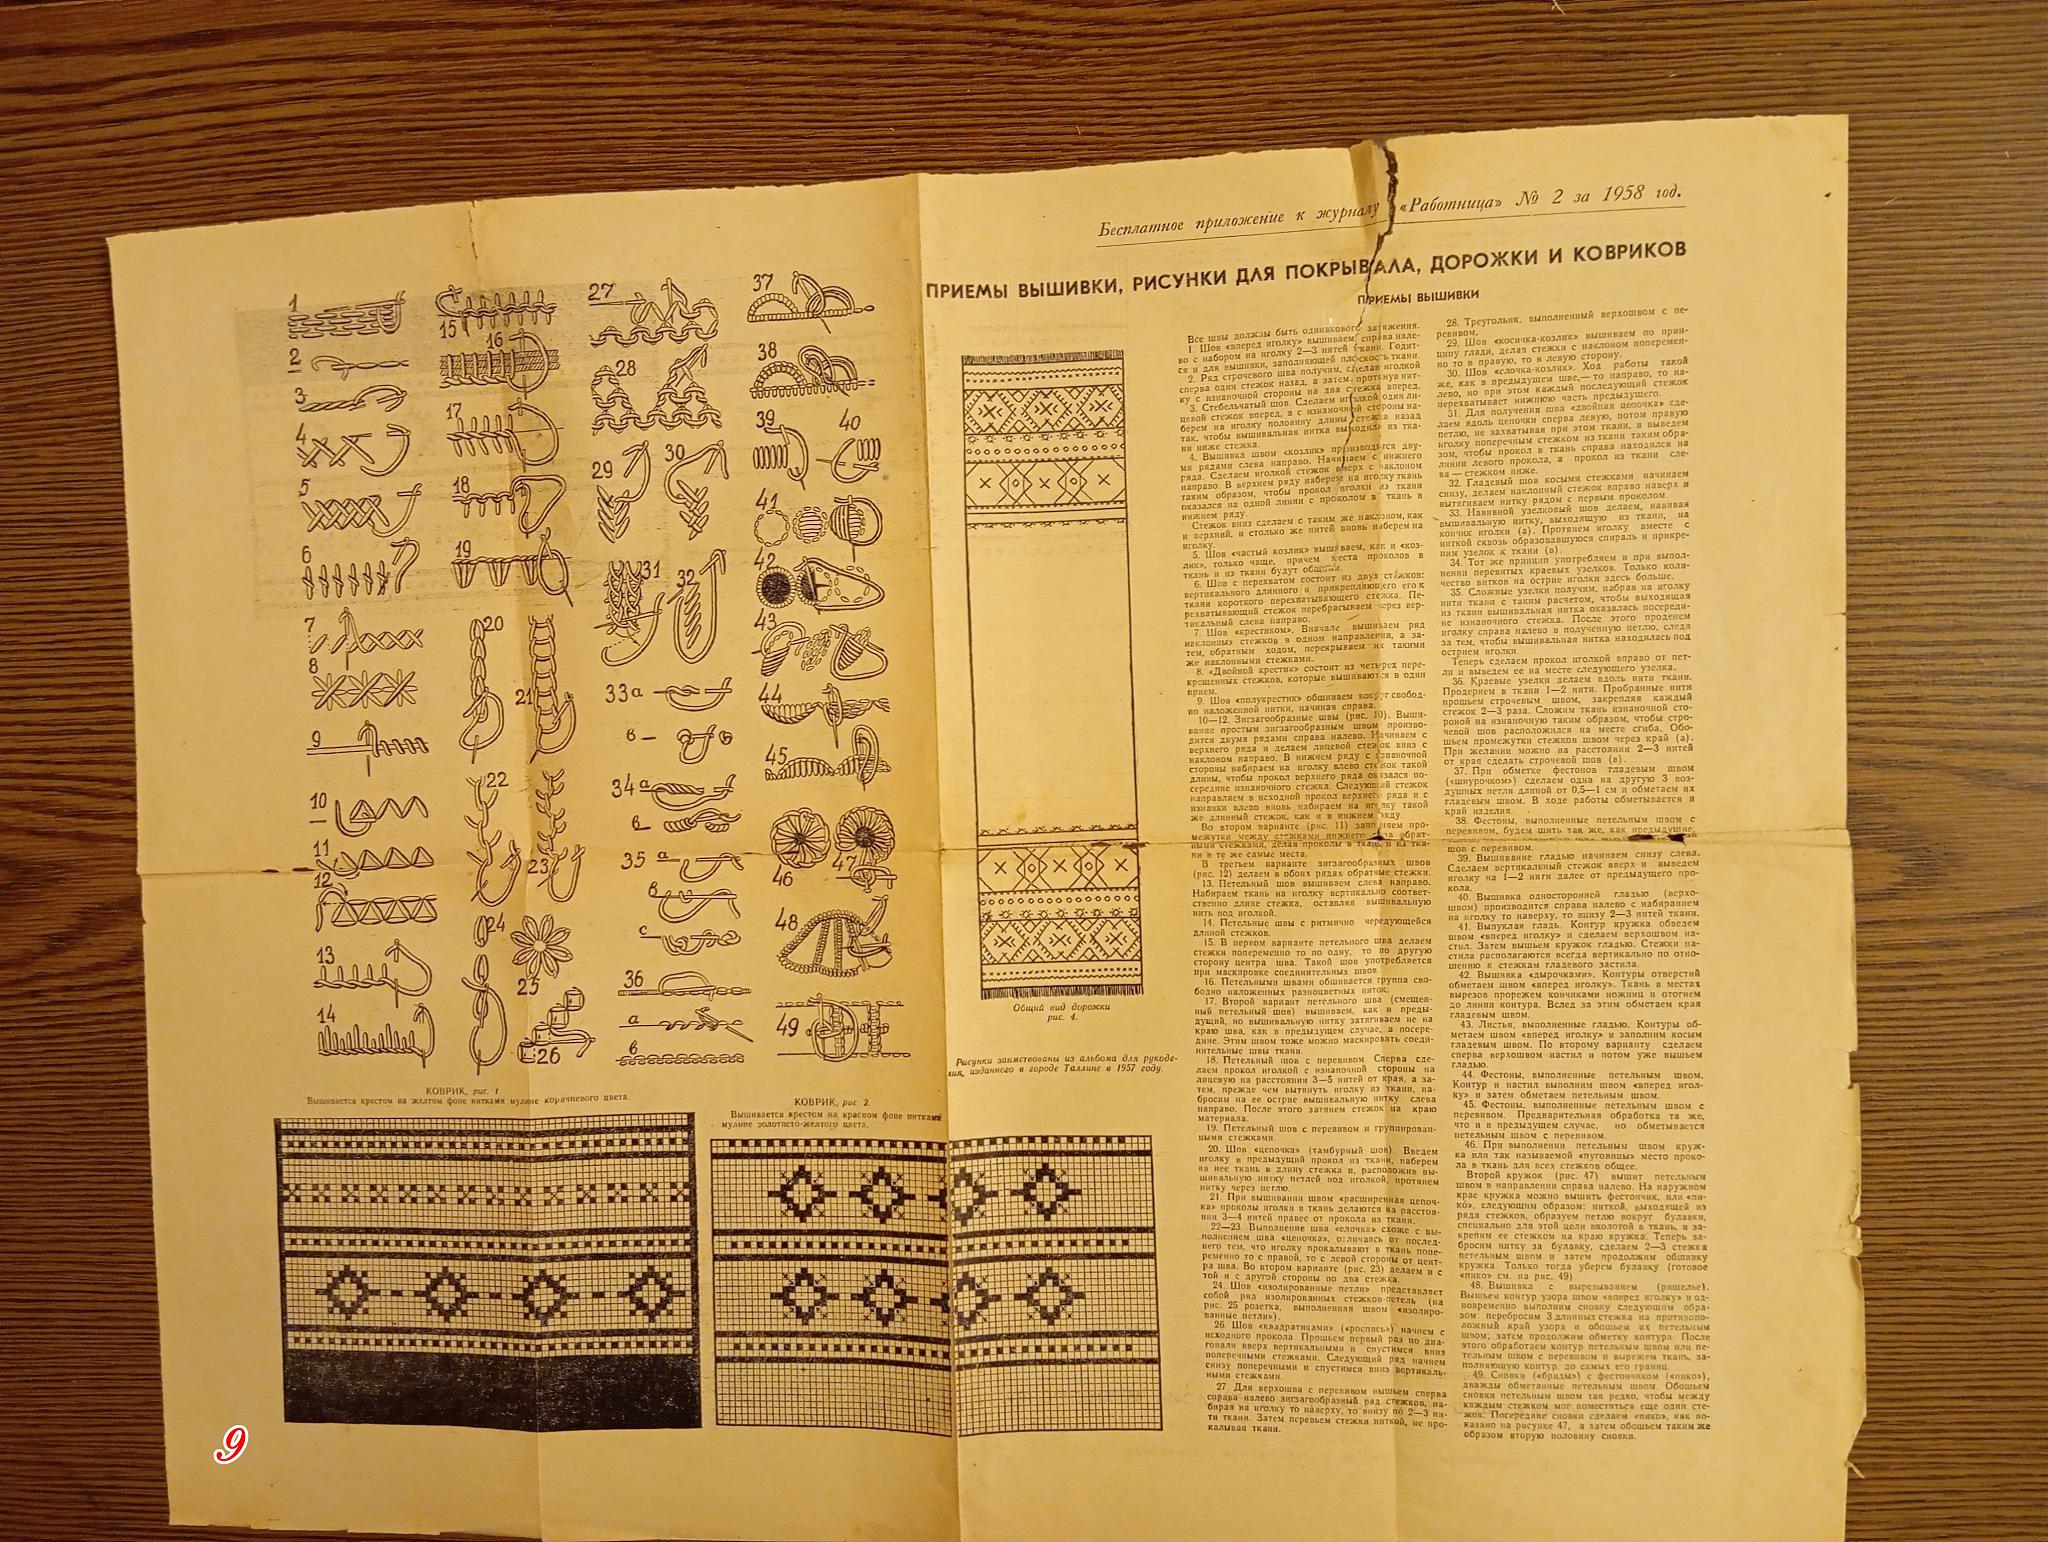 Бесплатное приложение к журналу «Работница» № 2 за 1958 год.
ПРИЕМЫ ВЫШИВКИ, РИСУНКИ ДЛЯ ПОКРЫВАЛА, ДОРОЖКИ И КОВРИКОВ
ПРИЕМЫ ВЫШИВКИ
1
2
3
4
5
6
7
8
9
10
11
12
13
14
15
16
17
18
19
20
21
22
23
24
25
26
27
28
29
30
31
32
33а
в
34а
в
35 а
в
с
36
а
в
37
38
39
40
41
42
43
44
45
46
47
48
49
КОВРИК, рис. 1
Вышивается крестом на желтом фоне нитками мулине коричневого цвета.
КОВРИК, рис. 2.
Вышивается крестом на красном фоне нитками
мулине золотисто-желтого цвета.
Общий вид дорожки
рис. 4.
Рисунки заимствованы из альбома для рукоде-
лия, изданного в городе Таллине в 1957 году.
Все швы должны быть одинакового затяжения.
1. Шов «вперед иголку» вышиваем справа нале-
во с набором на иголку 2—3 нитей ткани. Годит-
ся и для вышивки, заполняющей плоскость ткани.
2. Ряд строчевого шва получим, сделав иголкой
сперва один стежок назад, а затем, протянув нит-
ку с изнаночной стороны на два стежка вперед.
3. Стебельчатый шов. Сделаем иголкой один ли-
цевой стежок вперед, а с изнаночной стороны на-
берем на иголку половину длины стежка назад
так, чтобы вышивальная нитка выходила из тка-
ни ниже стежка.
4. Вышивка швом «козлик» производится дву-
мя рядами слева направо. Начинаем с нижнего
ряда. Сделаем иголкой стежок вверх с наклоном
направо. В верхнем ряду наберем на иголку ткань
таким образом, чтобы прокол иголки из ткани
оказался на одной линии с проколом в ткань в
нижнем ряду.
Стежок вниз сделаем с таким же наклоном, как
и верхний, и столько же нитей вновь наберем на
иголку.
5. Шов «частый козлик» вышиваем, как и «коз-
лик», только чаще, причем места проколов в
ткань и из ткани будут общими.
6. Шов с перехватом состоит из двух стежков:
вертикального длинного и прикрепляющего его к
ткани короткого перехватывающего стежка. Пе-
рехватывающий стежок перебрасываем через вер-
тикальный слева направо.
7. Шов «крестиком». Вначале вышиваем ряд
наклонных стежков в одном направлении, а за-
тем, обратным ходом, перекрываем их такими
же наклонными стежками.
8. «Двойной крестик» состоит из четырех пере-
крещенных стежков, которые вышиваются в один
прием.
9. Шов «полукрестик» обшиваем вокруг свобод-
но наложенной нитки, начиная справа.
10—12. Зигзагообразные швы (рис. 10). Выши-
вание простым зигзагообразным швом произво-
дится двумя рядами справа налево. Начинаем с
верхнего ряда и делаем лицевой стежок вниз с
наклоном направо. В нижнем ряду с изнаночной
стороны набираем на иголку влево стежок такой
длины, чтобы прокол верхнего ряда оказался по-
середине изнаночного стежка. Следующий стежок
направляем в исходной прокол верхнего ряда и с
изнанки влево вновь набираем на иголку такой
же длинный стежок, как и в нижнем ряду.
Во втором варианте (рис. 11) заполняем про-
межутки между стежками нижнего ряда обрат-
ными стежками, делая проколы в ткань и из тка-
ни в те же самые места.
В третьем варианте зигзагообразных швов
(рис. 12) делаем в обоих рядах обратные стежки.
13. Петельный шов вышиваем слева направо.
Набираем ткань на иголку вертикально соответ-
ственно длине стежка, оставляя вышивальную
нить под иголкой.
14. Петельные швы с ритмично чередующейся
длиной стежков.
15. В первом варианте петельного шва делаем
стежки попеременно то по одну, то по другую
сторону центра шва. Такой шов употребляется
при маскировке соединительных швов.
16. Петельными швами обшивается группа сво-
бодно наложенных разноцветных ниток.
17. Второй вариант петельного шва (смещен-
ный петельный шов) вышиваем, как и преды-
дущий, но вышивальную нитку затягиваем не на
краю шва, как в предыдущем случае, а посере-
дине. Этим швом тоже можно маскировать соеди-
нительные швы ткани.
18. Петельный шов с перевивом. Сперва сде-
лаем прокол иголкой с изнаночной стороны на
лицевую на расстоянии 3—5 нитей от края, а за-
тем, прежде чем вытянуть иголку из ткани, на-
бросим на ее острие вышивальную нитку слева
направо. После этого затянем стежок на краю
материала.
19. Петельный шов с перевивом и группирован-
ными стежками.
20. Шов «цепочка» (тамбурный шов). Введем
иголку в предыдущий прокол из ткани, наберем
на нее ткань в длину стежка и, расположив вы-
шивальную нитку петлей под иголкой, протянем
нитку через петлю.
21. При вышивании швом «расширенная цепоч-
ка» проколы иголки в ткань делаются на расстоя-
нии 3—4 нитей правее от прокола из ткани.
22—23. Выполнение шва «елочка» схоже с вы-
полнением шва «цепочка», отличаясь от послед-
него тем, что иголку прокалывают в ткань попе-
ременно то с правой, то с левой стороны от цент-
ра шва. Во втором варианте (рис. 23) делаем и с
той и с другой стороны по два стежка.
24. Шов «изолированные петли» представляет
собой ряд изолированных стежков-петель (на
рис. 25 розетка, выполненная швом «изолиро-
ванные петли»).
26. Шов «квадратиками» («роспись») начнем с
исходного прокола. Прошьем первый раз по диа-
гонали вверх вертикальными и спустимся вниз
поперечными стежками. Следующий ряд начнем
снизу поперечными и спустимся вниз вертикаль-
ными стежками.
27. Для верхошва с перевивом вышьем сперва
справа налево зигзагообразный ряд стежков, на-
бирая на иголку то наверху, то внизу по 2—3 ни-
ти ткани. Затем перевьем стежки ниткой, не про-
калывая ткани.
28. Треугольник, выполненный верхошвом с пе-
ревивом.
29. Шов «косичка-козлик» вышиваем по прин-
ципу глади, делая стежки с наклоном поперемен-
но то в правую, то в левую сторону.
30. Шов «елочка-козлик». Ход работы такой
же, как в предыдущем шве,— то направо, то на-
лево, но при этом каждый последующий стежок
перехватывает нижнюю часть предыдущего.
31. Для получения шва «двойная цепочка» сде-
лаем вдоль цепочки сперва левую, потом правую
петлю, не захватывая при этом ткани, и выведем
иголку поперечным стежком из ткани таким обра-
зом, чтобы прокол в ткань справа находился на
линии левого прокола, а прокол из ткани сле-
ва — стежком ниже.
32. Гладевый шов косыми стежками начинаем
снизу, делаем наклонный стежок вправо наверх и
вытягиваем нитку рядом с первым проколом.
33. Навивной узелковый шов делаем, навивая
вышивальную нитку, выходящую из ткани, на
кончик иголки (а). Протянем иголку вместе с
ниткой сквозь образовавшуюся спираль и прикре-
пим узелок к ткани (в).
34. Тот же принцип употребляем и при выпол-
нении перевитых краевых узелков. Только коли-
чество витков на острие иголки здесь больше.
35. Сложные узелки получим, набрав на иголку
нити ткани с таким расчетом, чтобы выходящая
из ткани вышивальная нитка оказалась посереди-
не изнаночного стежка. После этого проденем
иголку справа налево в полученную петлю, следя
за тем, чтобы вышивальная нитка находилась под
острием иголки.
Теперь сделаем прокол иголкой вправо от пет-
ли и выведем ее на месте следующего узелка.
36. Краевые узелки делаем вдоль нити ткани.
Продернем в ткани 1—2 нити. Пробранные нити
прошьем строчевым швом, закрепляя каждый
стежок 2—3 раза. Сложим ткань изнаночной сто-
роной на изнаночную таким образом, чтобы стро-
чевой шов расположился на месте сгиба. Обо-
шьем промежутки стежков швом через край (а).
При желании можно на расстоянии 2—3 нитей
от края сделать строчевой шов (в).
37. При обметке фестонов гладевым швом
(«шнурочком») сделаем одна на другую 3 воз-
душных петли длиной от 0,5—1 см и обметаем их
гладевым швом. В ходе работы обметывается и
край изделия.
38. Фестоны, выполненные петельным швом с
перевивом, будем шить так же, как предыдущие,
швов с перевивом.
39. Вышивание гладью начинаем снизу слева.
Сделаем вертикальный стежок вверх и выведем
иголку на 1—2 нити далее от предыдущего про-
кола.
40. Вышивка односторонней гладью (верхо-
швом) производится справа налево с набиранием
на иголку то наверху, то внизу 2—3 нитей ткани.
41. Выпуклая гладь. Контур кружка обведем
швом «вперед иголку» и сделаем верхошвом на-
стил. Затем вышьем кружок гладью. Стежки на-
стила располагаются всегда вертикально по отно-
шению к стежкам гладевого застила.
42. Вышивка «дырочками». Контуры отверстий
обметаем швом «вперед иголку». Ткань в местах
вырезов прорежем кончиками ножниц и отогнем
до линии контура. Вслед за этим обметаем края
гладевым швом.
43. Листья, выполненные гладью. Контуры об-
метаем швом «вперед иголку» и заполним косым
гладевым швом. По второму варианту сделаем
сперва верхошвом настил и потом уже вышьем
гладью.
44. Фестоны, выполненные петельным швом.
Контур и настил выполним швом «вперед игол-
ку» и затем обметаем петельным швом.
45. Фестоны, выполненные петельным швом с
перевивом. Предварительная обработка та же,
что и в предыдущем случае, но обметывается
петельным швом с перевивом.
46. При выполнении петельным швом круж-
ка или так называемой «пуговицы» место проко-
ла в ткань для всех стежков общее.
Второй кружок (рис. 47) вышит петельным
швом в направлении справа налево. На наружном
крае кружка можно вышить фестончик, или «пи-
ко», следующим образом: ниткой, выходящей из
ряда стежков, образуем петлю вокруг булавки,
специально для этой цели вколотой в ткань, и за-
крепим ее стежком на краю кружка. Теперь за-
бросим нитку за булавку, сделаем 2—3 стежка
петельным швом и затем продолжим обшивку
кружка. Только тогда уберем булавку (готовое
«пико» см. на рис. 49).
48. Вышивка с вырезыванием (ришелье).
Вышьем контур узора швом «вперед иголку» и од-
новременно выполним сновку следующим обра-
зом: перебросим 3 длинных стежка на противопо-
ложный край узора и обошьем их петельным
швом; затем продолжим обметку контура. После
этого обработаем контур петельным швом или пе-
тельным швом с перевивом и вырежем ткань, за-
полняющую контур, до самых его границ.
49. Сновки («бриды») с фестончиком («пико»),
дважды обметанные петельным швом. Обошьем
сновки петельным швом так редко, чтобы между
каждым стежком мог поместиться еще один сте-
жок. Посередине сновки сделаем «пико», как по-
казано на рисунке 47, а затем обошьем таким же
образом вторую половину сновки.
9